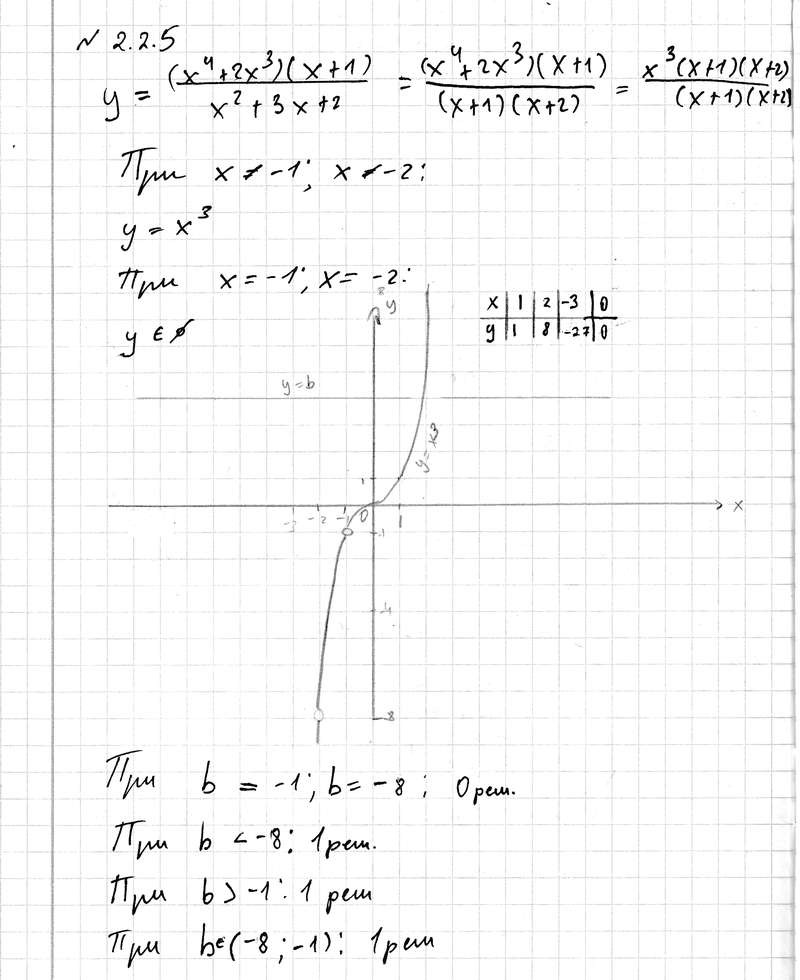 № 2.2.5
y = (x⁴+2x³)(x+1) / x²+3x+2 = (x⁴+2x³)(x+1) / (x+1)(x+2) = x³(x+1)(x+2) / (x+1)(x+2)
При x ≠ -1; x ≠ -2:
y = x³
При x = -1; x = -2:
y ∈ ∅
x | 1 | 2 | -3 | 0
y | 1 | 8 | -27 | 0
8
y
y=b
y=x³
1
-3 -2 -1 0 1 x
-1
-4
-8
При b = -1; b = -8; 0 реш.
При b < -8: 1 реш.
При b > -1: 1 реш
При b∈(-8; -1): 1 реш